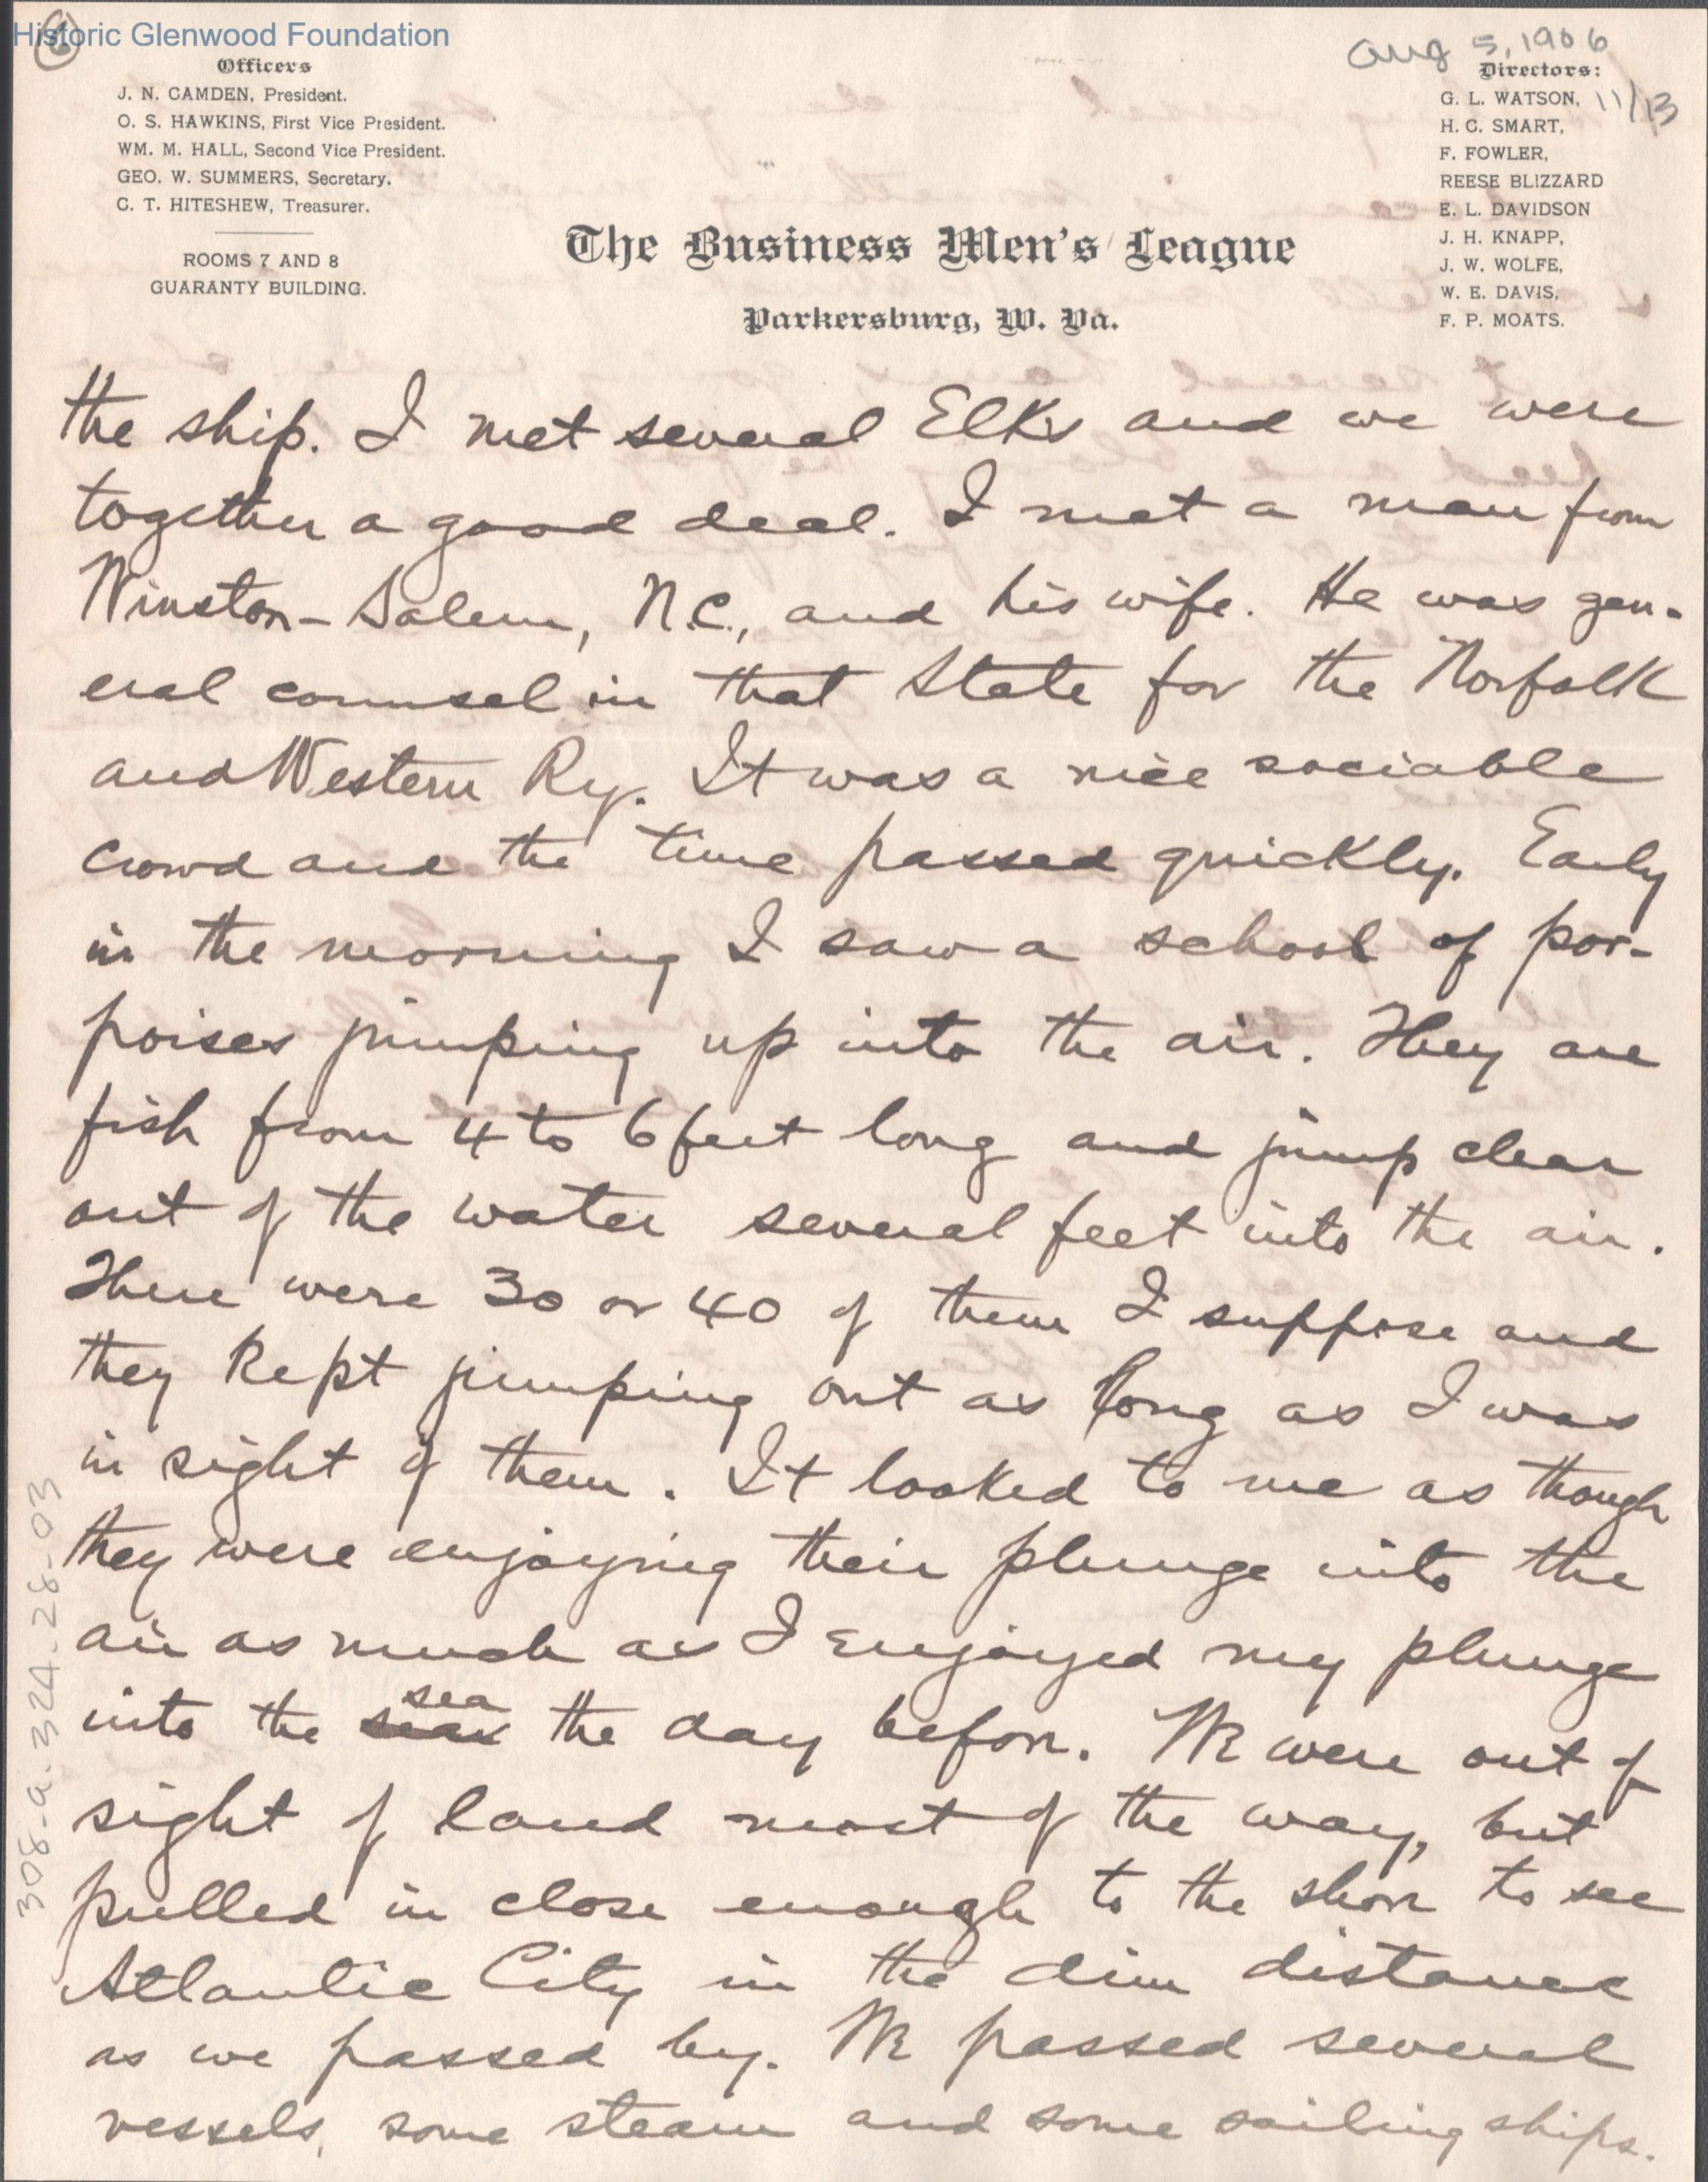 Historic Glenwood Foundation
Aug 5, 1906
11/13
Officers
J. N. CAMDEN, President.
O. S. HAWKINS, First Vice President.
WM. M. HALL, Second Vice President.
GEO. W. SUMMERS, Secretary.
C. T. HITESHEW, Treasurer.
ROOMS 7 AND 8
GUARANTY BUILDING.
Directors:
G. L. WATSON,
H. C. SMART,
F. FOWLER,
REESE BLIZZARD
E. L. DAVIDSON
J. H. KNAPP,
J. W. WOLFE,
W. E. DAVIS,
F. P. MOATS.
The Business Men's League
Parkersburg, W. Va.
the ship. I met several Elks and we were
together a good deal. I met a man from
Winston-Salem, N.C., and his wife. He was gen-
eral counsel in that State for the Norfolk
and Western Ry. It was a nice sociable
crowd and the time passed quickly. Early
in the morning I saw a school of por-
poises jumping up into the air. They are
fish from 4 to 6 feet long and jump clear
out of the water several feet into the air.
There were 30 or 40 of them I suppose and
they kept jumping out as long as I was
in sight of them. It looked to me as though
they were enjoying their plunge into the
air as much as I enjoyed my plunge
into the sea the day before. We were out of
sight of land most of the way, but
pulled in close enough to the shore to see
Atlantic City in the dim distance
as we passed by. We passed several
vessels, some steam and some sailing ships.
308-a.324.28-03